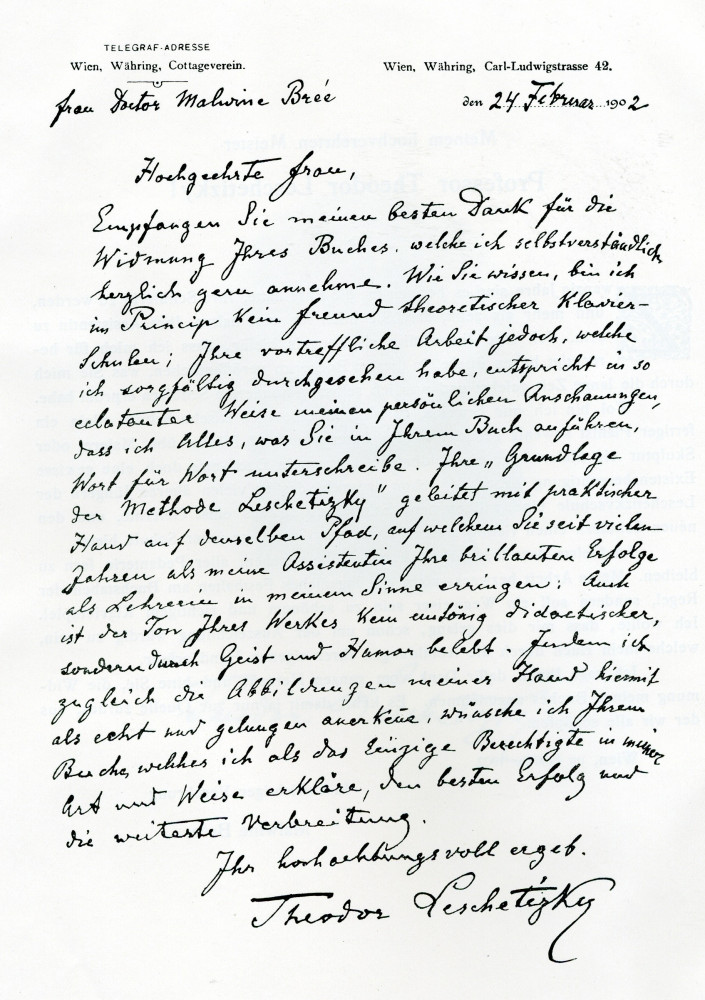 TELEGRAF-ADRESSE
Wien, Währing, Cottageverein.
Wien, Währing, Carl-Ludwigstrasse 42.
Frau Doctor Malwine Brée
den 24 Februar 1902
Hochgeehrte Frau,
Empfangen Sie meinen besten Dank für die
Widmung Ihres Buches, welche ich selbstverständlich
herzlich gern annehme. Wie Sie wissen, bin ich
im Princip kein Freund theoretischer Klavier-
Schulen; Ihre vortreffliche Arbeit jedoch, welche
ich sorgfältig durchgesehen habe, entspricht in so
eclatanter Weise meinen persönlichen Anschauungen,
dass ich Alles, was Sie in Ihrem Buch anführen,
Wort für Wort unterschreibe. Ihre „Grundlage
der Methode Leschetizky" geleitet mit praktischer
Hand auf demselben Pfad, auf welchem Sie seit vielen
Jahren als meine Assistentin Ihre brillanten Erfolge
als Lehrerin in meinem Sinne erringen. Auch
ist der Ton Ihres Werkes kein eintönig didactischer,
sondern durch Geist und Humor belebt. Indem ich
zugleich die Abbildungen meiner Hand hiemit
als echt und gelungen anerkene, wünsche ich Ihrem
Buche, welches ich als das Einzige Berechtigte in meiner
Art und Weise erkläre, den besten Erfolg und
die weiterte Verbreitung.
Ihr hochachtungsvoll ergeb.
Theodor Leschetizky